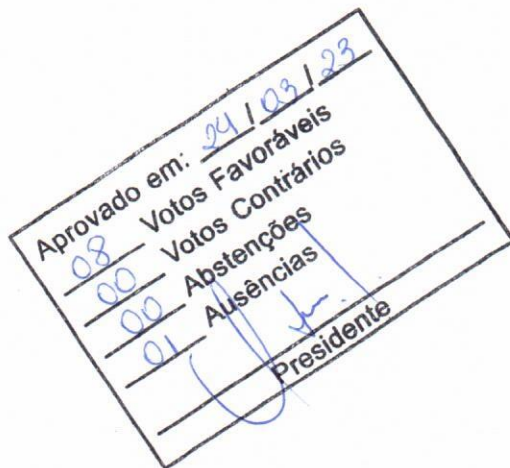 Aprovado em: 24/03/23
08 Votos Favoráveis
00 Votos Contrários
00 Abstenções
01 Ausências
Presidente